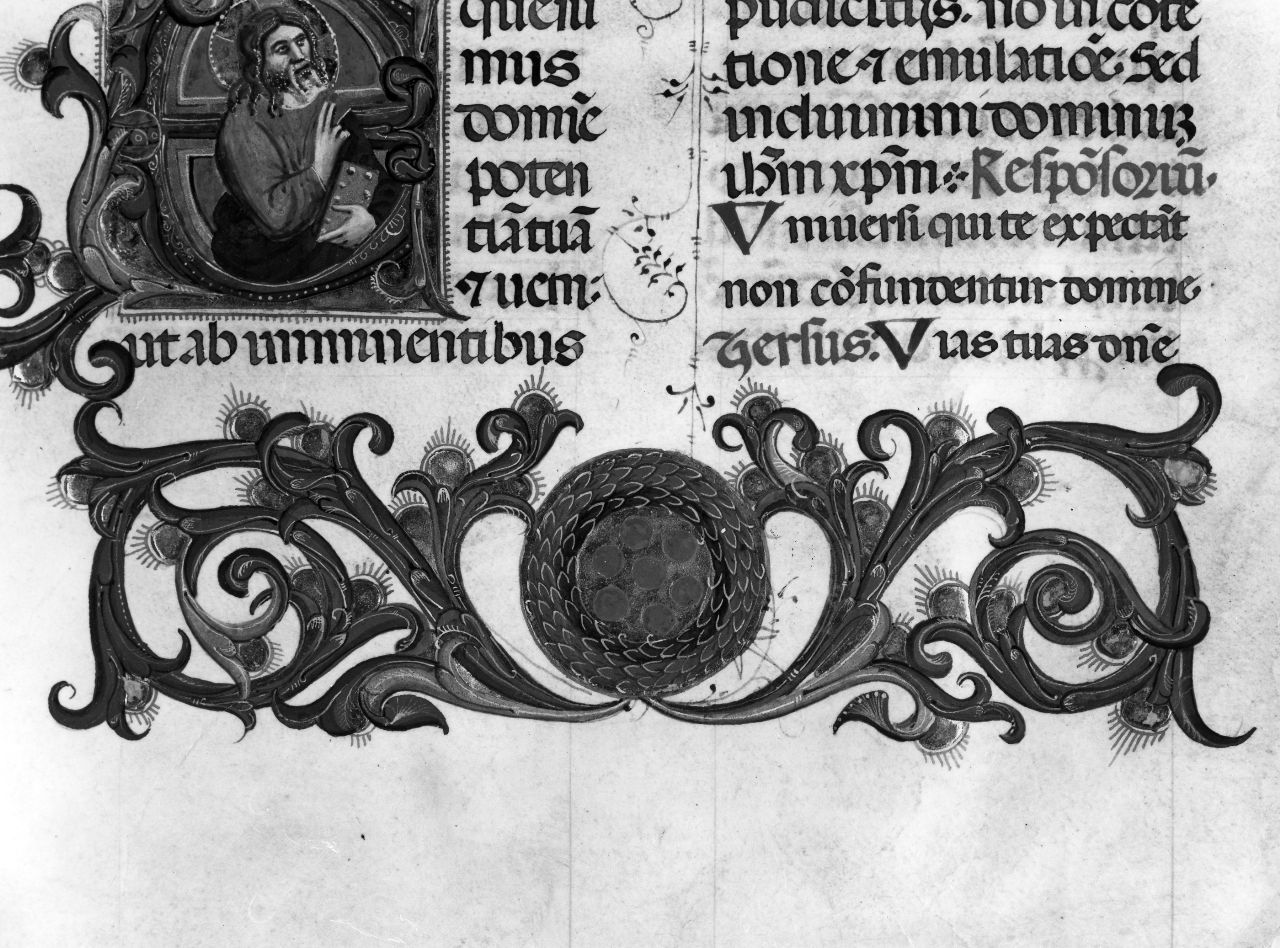 quesu
mus
domīe
poten
tiā tuā
⁊ ueni:
ut ab imminentibus
pudicitijs. nō in cōte
tione ⁊ emulatiōe. Sed
induimini dominuꝫ
ihm̄ xpm̄: Respōsoriū.
Uniuersi qui te expectāt
non cōfundentur domine.
Versus. Vias tuas dnē